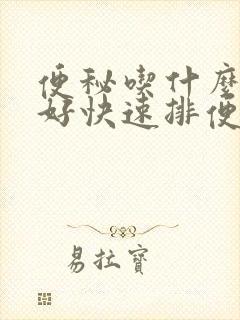 便秘喫什麼
好快速排便
易拉寶